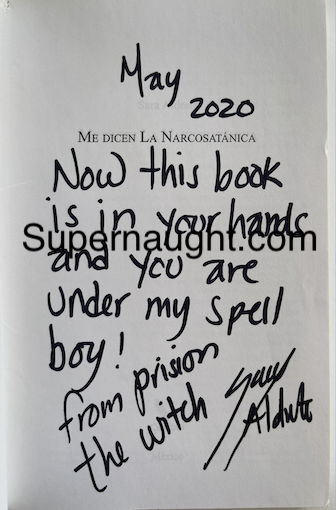 May
2020
ME DICEN LA NARCOSATÁNICA
Now this book
is in your hands
Supernaught.com
and you are
under my spell
boy!
from prision
the witch
Sara
Aldrete